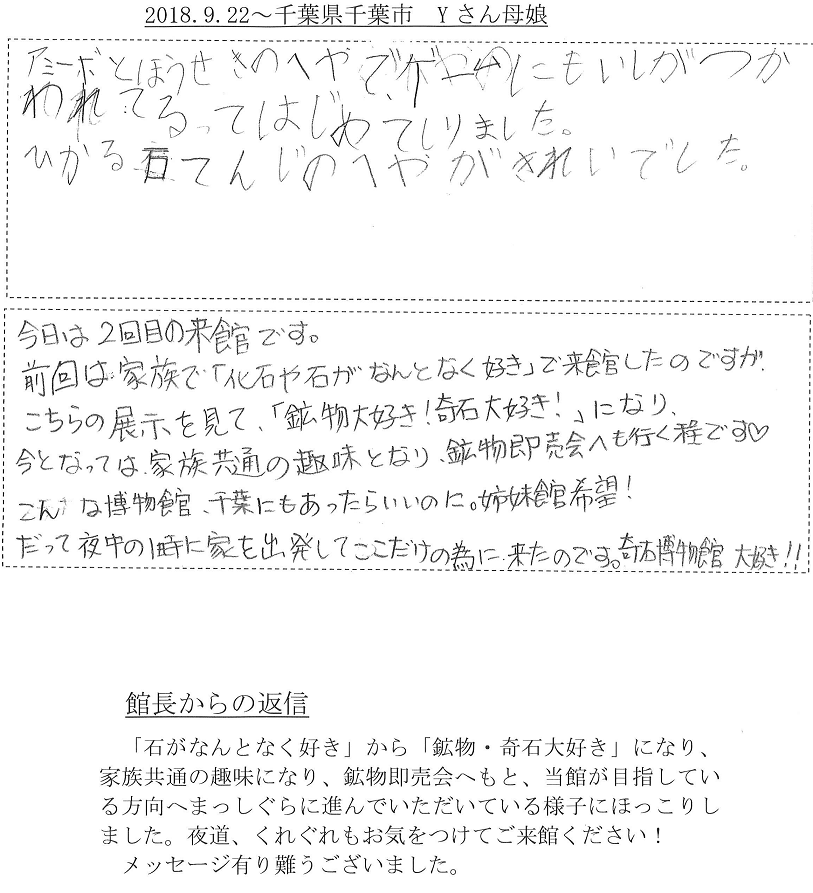 2018.9.22～千葉県千葉市　Yさん母娘
アミーボとほうせきのへやで、ゲームにもいしがつか
われてるってはじめてしりました。
ひかる石てんじのへやがきれいでした。
今日は2回目の来館です。
前回は家族で「化石や石がなんとなく好き」で来館したのですが、
こちらの展示を見て、「鉱物大好き！奇石大好き！」になり、
今となっては、家族共通の趣味となり、鉱物即売会へも行く程です♡
こんな博物館、千葉にもあったらいいのに。姉妹館希望！
だって夜中の1時に家を出発してここだけの為に来たのです。奇石博物館 大好き!!
館長からの返信
「石がなんとなく好き」から「鉱物・奇石大好き」になり、
家族共通の趣味になり、鉱物即売会へもと、当館が目指してい
る方向へまっしぐらに進んでいただいている様子にほっこりし
ました。夜道、くれぐれもお気をつけてご来館ください！
メッセージ有り難うございました。